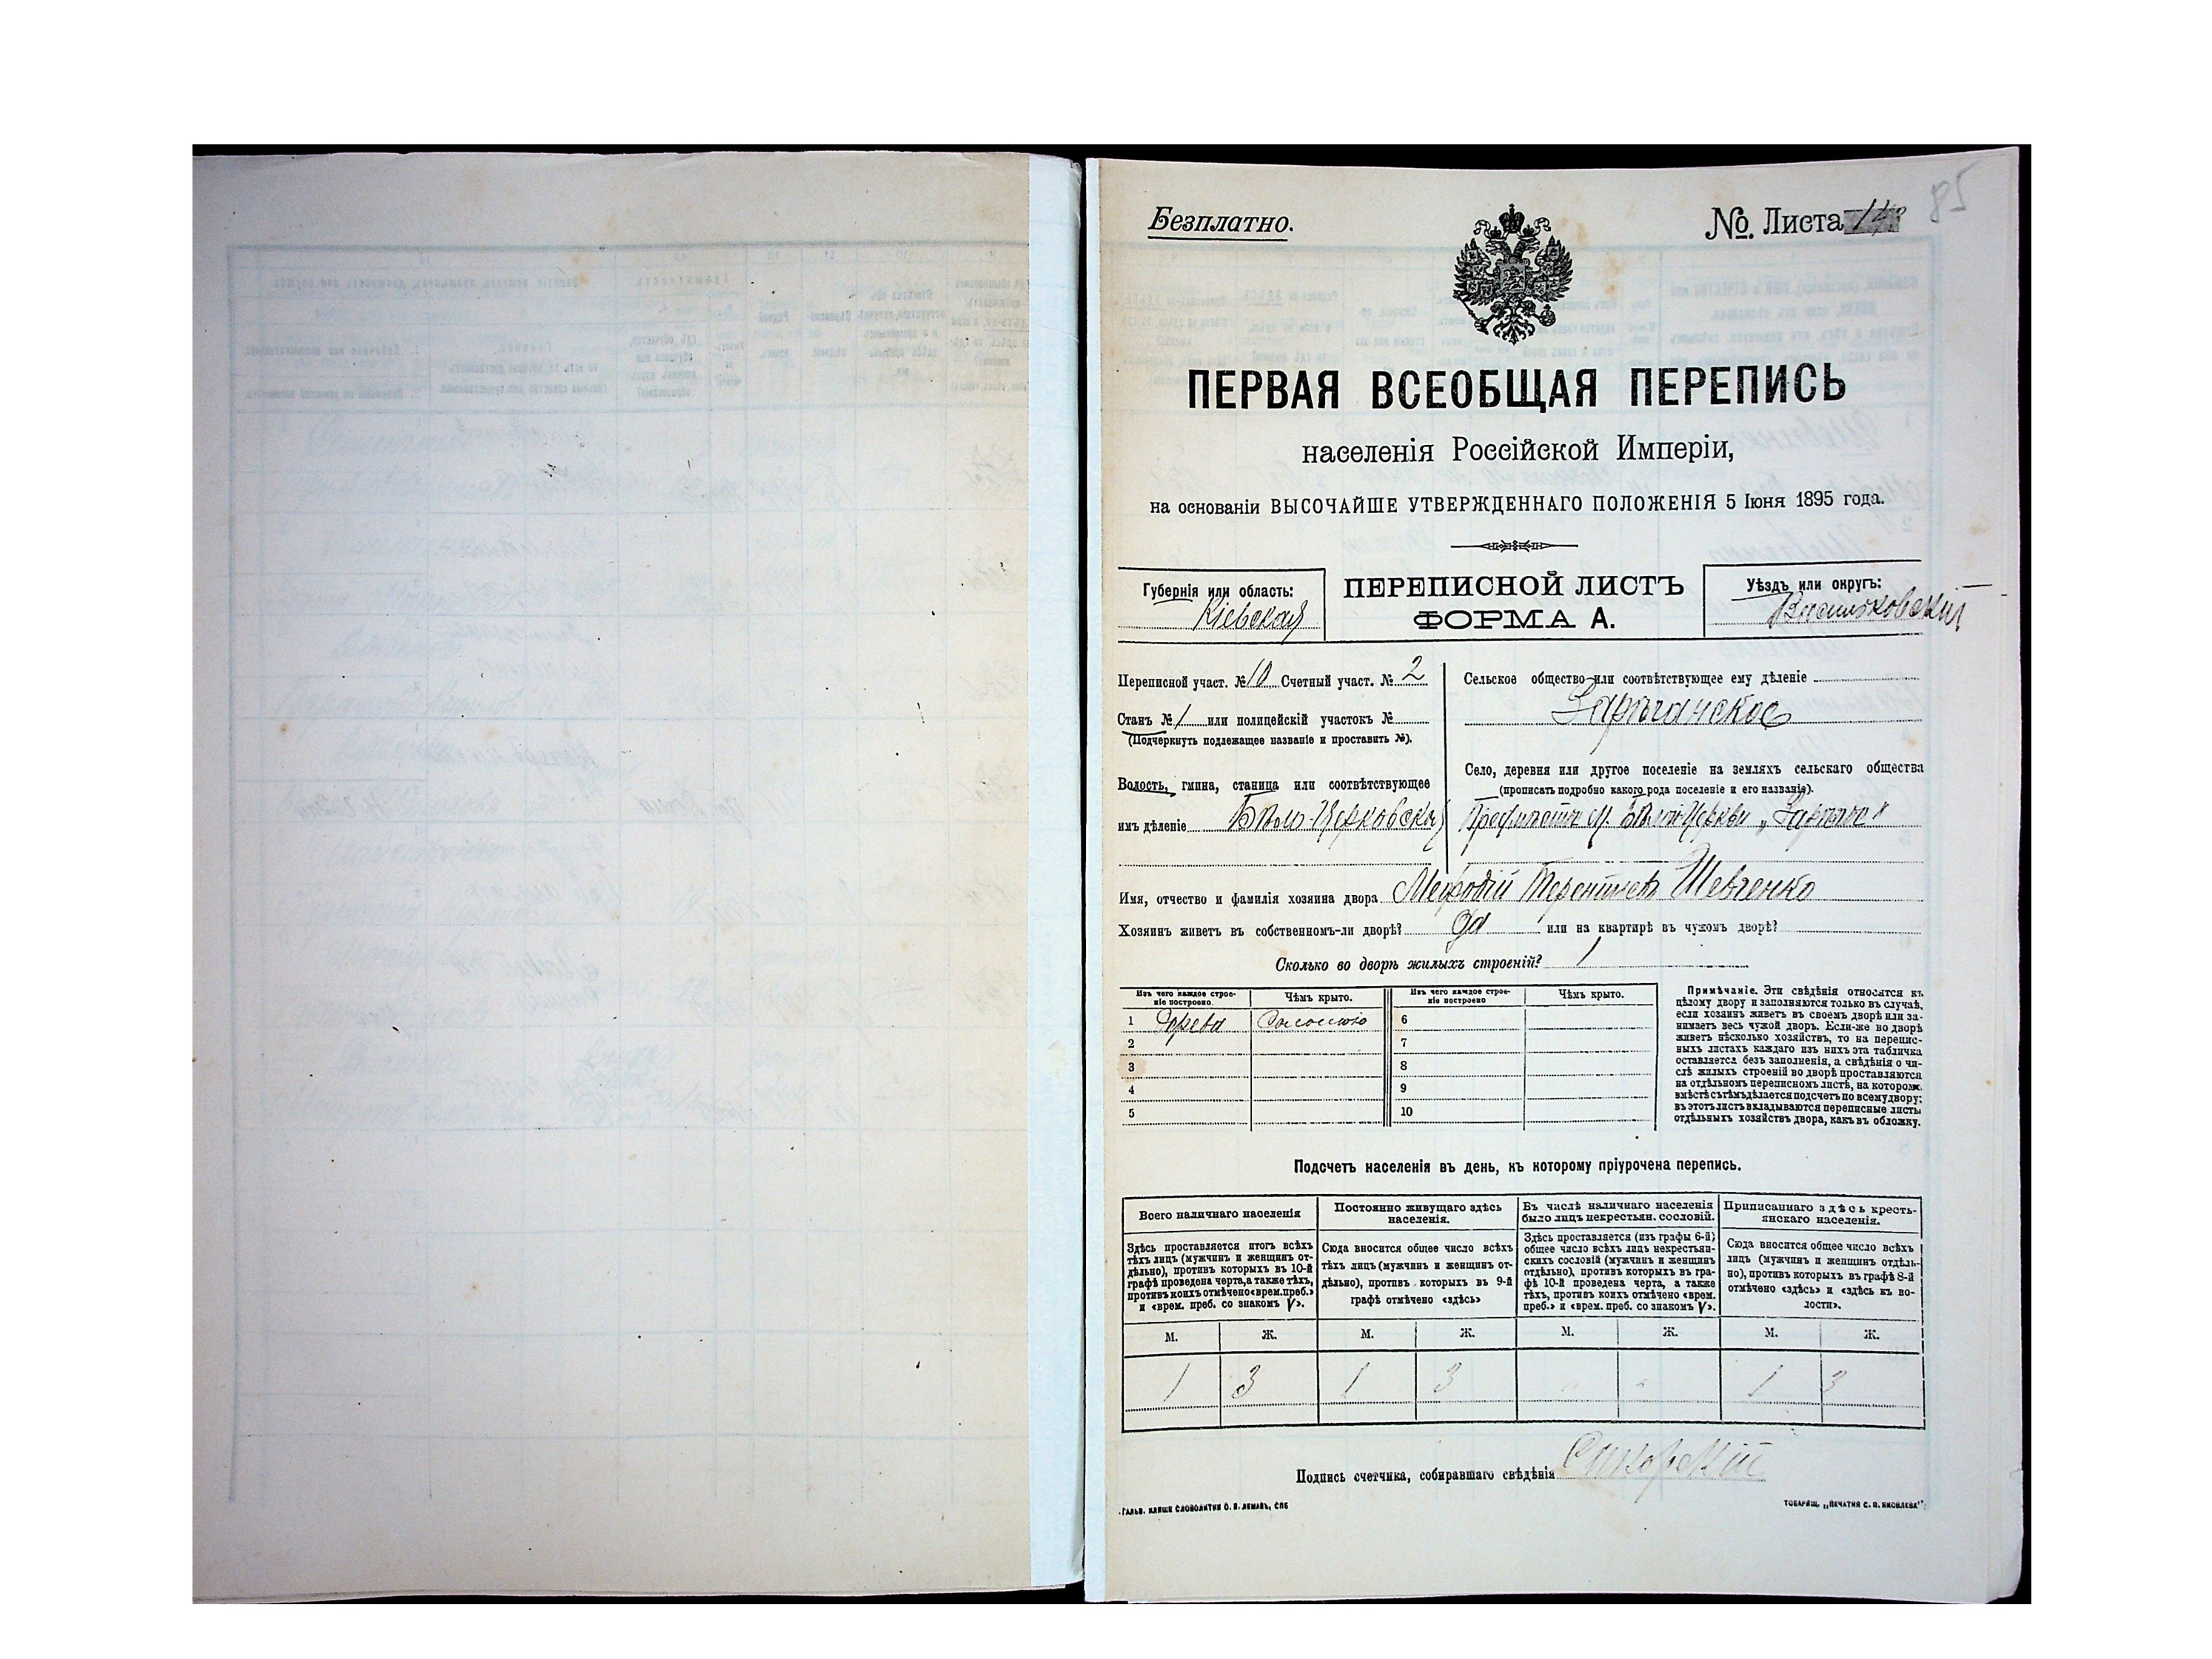 85
Безплатно.
№. Листа
ПЕРВАЯ ВСЕОБЩАЯ ПЕРЕПИСЬ
населенія Россійской Имперіи,
на основаніи ВЫСОЧАЙШЕ УТВЕРЖДЕННАГО ПОЛОЖЕНІЯ 5 Іюня 1895 года.
Губернія или область:
Кіевская
ПЕРЕПИСНОЙ ЛИСТЪ
ФОРМА А.
Уѣздъ или округъ:
Васильковскій
Переписной участ. № 10 Счетный участ. № 2
Станъ № 1 или полицейскій участокъ №
(Подчеркнуть подлежащее названіе и проставить №).
Волость, гмина, станица или соотвѣтствующее
имъ дѣленіе Бѣло-Церковская
Сельское общество или соотвѣтствующее ему дѣленіе
Зарѣчанское
Село, деревня или другое поселеніе на земляхъ сельскаго общества
(прописать подробно какого рода поселеніе и его названіе).
Предмѣстье М. Бѣлой-Церкви „Зарѣчье"
Имя, отчество и фамилія хозяина двора Мефодій Терентіевъ Шевченко
Хозяинъ живетъ въ собственномъ-ли дворѣ? Да или на квартирѣ въ чужомъ дворѣ?
Сколько во дворѣ жилыхъ строеній? 1
Изъ чего каждое строе-
ніе построено.
Чѣмъ крыто.
Изъ чего каждое строе-
ніе построено
Чѣмъ крыто.
1 Дерева Соломою 6
2 7
3 8
4 9
5 10
Примѣчаніе. Эти свѣдѣнія относятся къ
цѣлому двору и заполняются только въ случаѣ,
если хозяинъ живетъ въ своемъ дворѣ или за-
нимаетъ весь чужой дворъ. Если-же во дворѣ
живетъ нѣсколько хозяйствъ, то на перепис-
ныхъ листахъ каждаго изъ нихъ эта табличка
оставляется безъ заполненія, а свѣдѣнія о чи-
слѣ жилыхъ строеній во дворѣ проставляются
на отдѣльномъ переписномъ листѣ, на которомъ
вмѣстѣ съ тѣмъ дѣлается подсчетъ по всему двору;
въ этотъ листъ вкладываются переписные листы
отдѣльныхъ хозяйствъ двора, какъ въ обложку.
Подсчетъ населенія въ день, къ которому пріурочена перепись.
Всего наличнаго населенія
Здѣсь проставляется итогъ всѣхъ
тѣхъ лицъ (мужчинъ и женщинъ от-
дѣльно), противъ которыхъ въ 10-й
графѣ проведена черта, а также тѣхъ,
противъ коихъ отмѣчено «врем. преб.»
и «врем. преб. со знакомъ V».
Постоянно живущаго здѣсь
населенія.
Сюда вносится общее число всѣхъ
тѣхъ лицъ (мужчинъ и женщинъ от-
дѣльно), противъ которыхъ въ 9-й
графѣ отмѣчено «здѣсь»
Въ числѣ наличнаго населенія
было лицъ некрестьян. сословій.
Здѣсь проставляется (изъ графы 6-й)
общее число всѣхъ лицъ некрестьян-
скихъ сословій (мужчинъ и женщинъ
отдѣльно), противъ которыхъ въ гра-
фѣ 10-й проведена черта, а также
тѣхъ, противъ коихъ отмѣчено «врем.
преб.» и «врем. преб. со знакомъ V».
Приписаннаго здѣсь кресть-
янскаго населенія.
Сюда вносится общее число всѣхъ
лицъ (мужчинъ и женщинъ отдѣль-
но), противъ которыхъ въ графѣ 8-й
отмѣчено «здѣсь» и «здѣсь въ во-
лости».
М. Ж. М. Ж. М. Ж. М. Ж.
1 3 1 3 " " 1 3
Подпись счетчика, собиравшаго свѣдѣнія Сикорскій
ГАЛЬВ. КЛИШЕ СЛОВОЛИТНИ О. И. ЛЕМАНЪ, СПБ
ТОВАРИЩ. „ПЕЧАТНЯ С. П. ЯКОВЛЕВА"